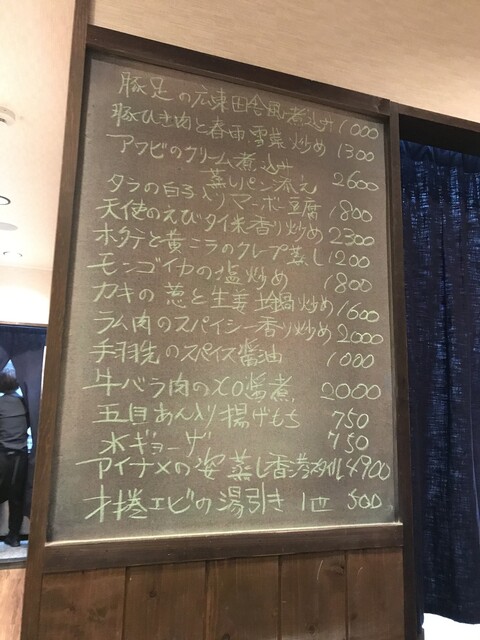 豚足の広東田舎風煮込み 1000
豚ひき肉と春雨雪菜炒め 1300
アワビのクリーム煮込み
蒸しパン添え 2600
タラの白子入りマーボー豆腐 1800
天使のえびタイ米香り炒め 2300
ホタテと黄ニラのクレープ蒸し 1200
モンゴイカの塩炒め 1800
カキの葱と生姜土鍋炒め 1600
ラム肉のスパイシー香り炒め 2000
手羽先のスパイス醤油 1000
牛バラ肉のXO醤煮 2000
五目あん入り揚げもち 750
水ギョーザ 750
アイナメの姿蒸し香港スタイル 4900
才捲エビの湯引き 1匹 500